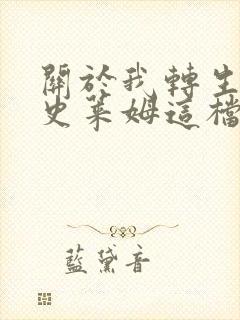 關於我轉生
史萊姆這檔
藍黛音